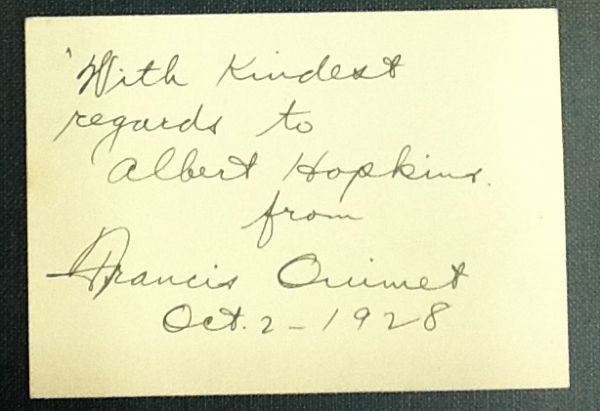 With Kindest
regards to
Albert Hopkins.
from
Francis Ouimet
Oct. 2 - 1928